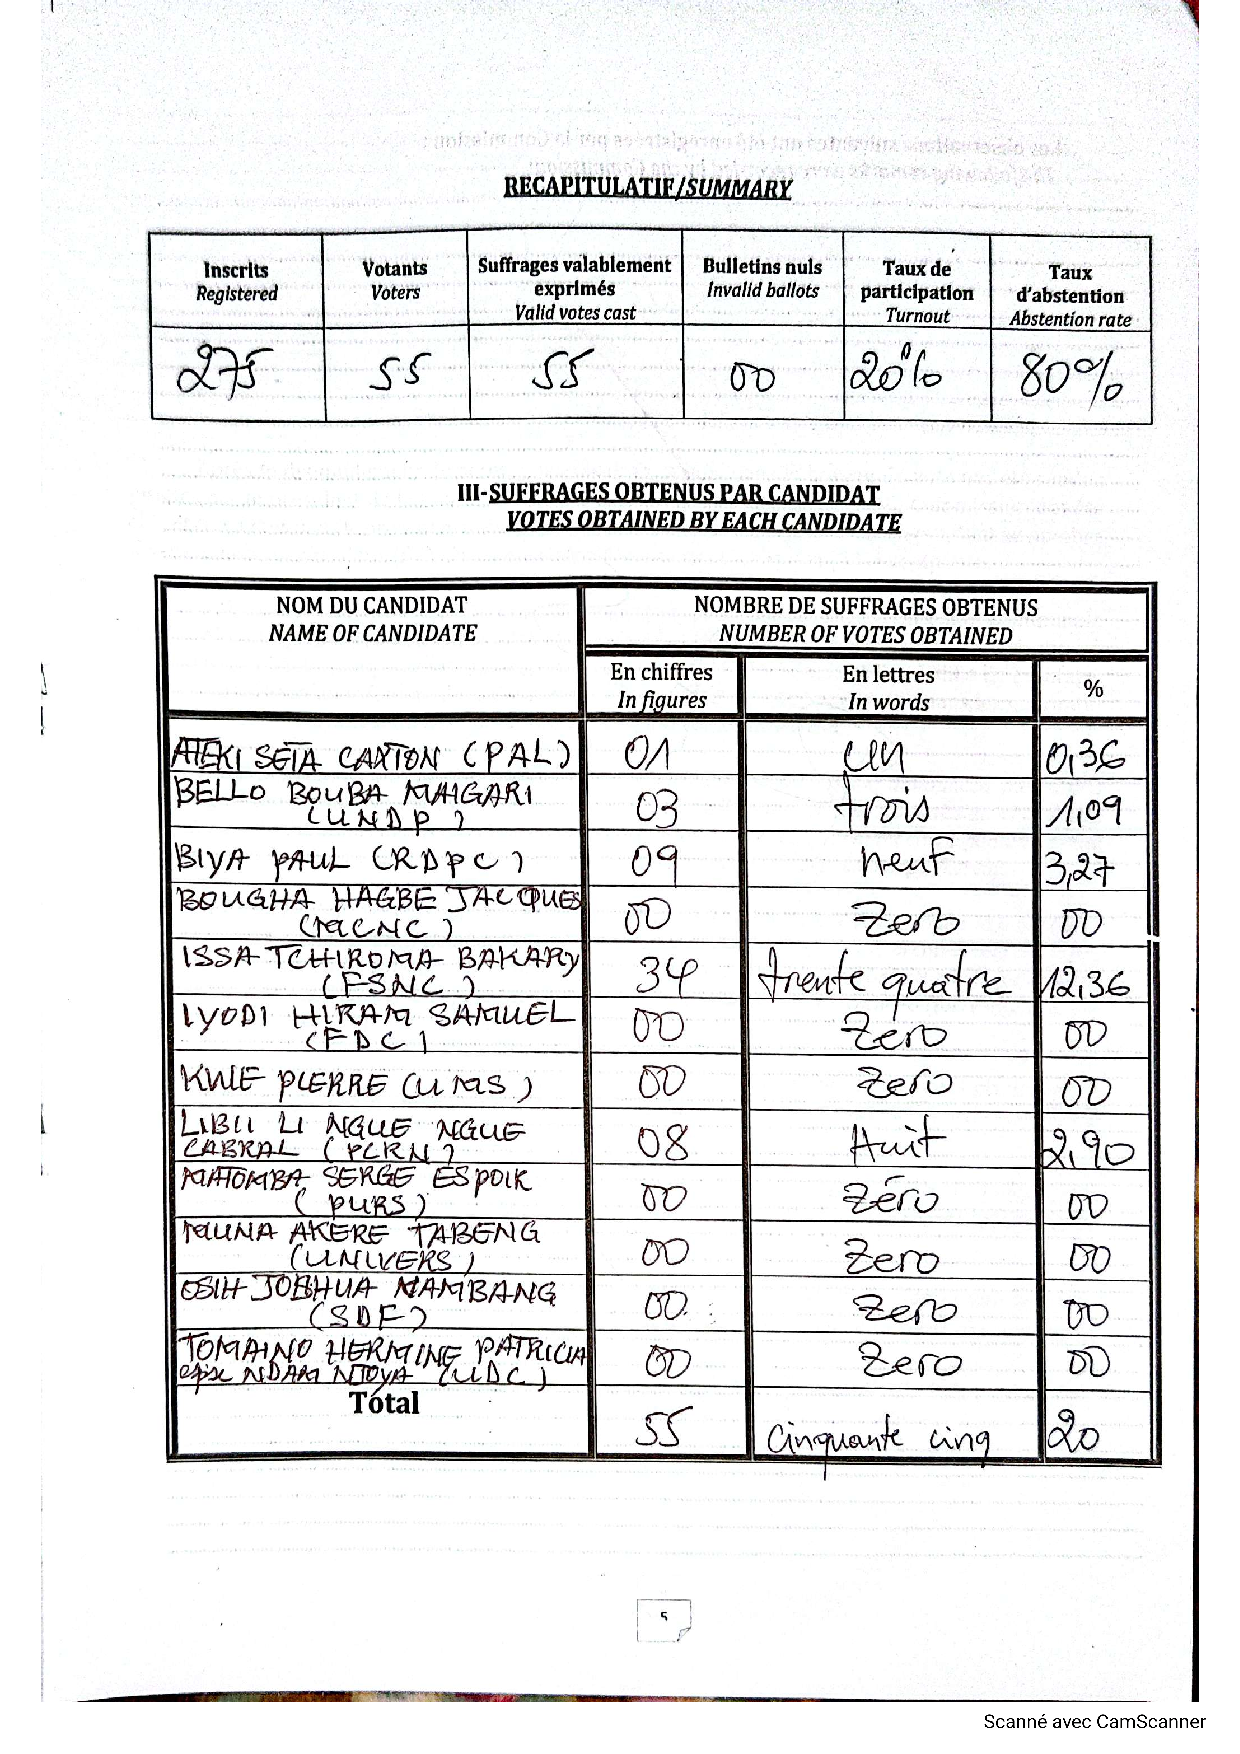 RECAPITULATIF/SUMMARY
Inscrits
Registered
Votants
Voters
Suffrages valablement
exprimés
Valid votes cast
Bulletins nuls
Invalid ballots
Taux de
participation
Turnout
Taux
d'abstention
Abstention rate
275
55
55
00
20%
80%
III-SUFFRAGES OBTENUS PAR CANDIDAT
VOTES OBTAINED BY EACH CANDIDATE
NOM DU CANDIDAT
NAME OF CANDIDATE
NOMBRE DE SUFFRAGES OBTENUS
NUMBER OF VOTES OBTAINED
En chiffres
In figures
En lettres
In words
%
ATEKI SETA CAXTON (PAL) 01 un 0,36
BELLO BOUBA MAIGARI
(UNDP) 03 trois 1,09
BIYA PAUL (RDPC) 09 neuf 3,27
BOUGHA HAGBE JACQUES
(MCNC) 00 Zero 00
ISSA TCHIROMA BAKARY
(FSNC) 34 trente quatre 12,36
IYODI HIRAM SAMUEL
(FDC) 00 Zero 00
KWE PIERRE (UMS) 00 Zero 00
LIBII LI NGUE NGUE
CABRAL (PCRN) 08 Huit 2,90
MATOMBA SERGE ESPOIR
(PURS) 00 Zéro 00
MUNA AKERE TABENG
(UNIVERS) 00 Zero 00
OSIH JOSHUA NAMBANG
(SDF) 00 Zero 00
TOMAINO HERMINE PATRICIA
epse NDAM NJOYA (UDC) 00 Zero 00
Total 55 Cinquante cinq 20
5
Scanné avec CamScanner